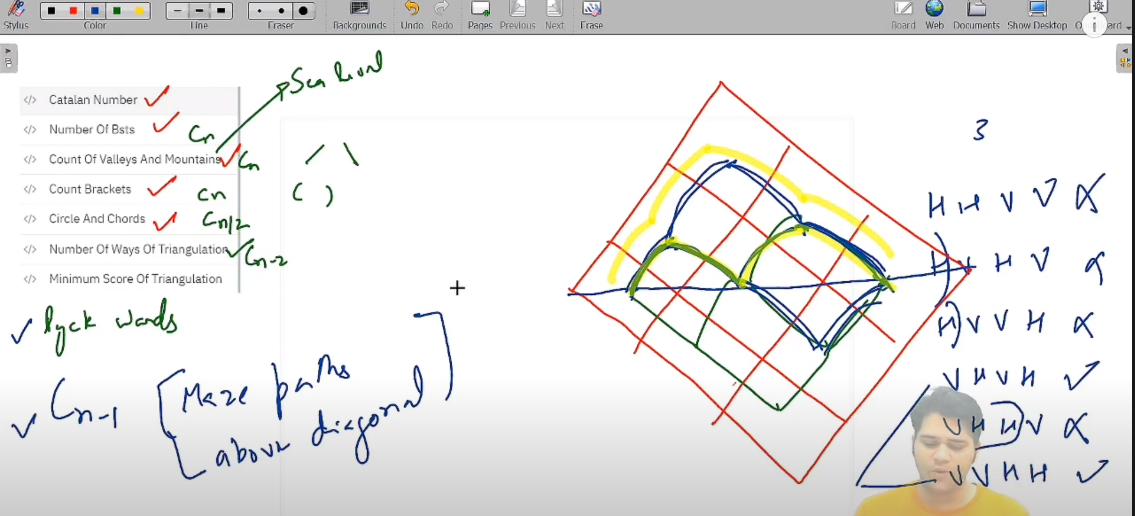 Stylus
Color
Line
Eraser
Backgrounds
Undo Redo
Pages Previous Next
Erase
Board Web Documents Show Desktop
i
Sea level
</> Catalan Number ✓
</> Number Of Bsts ✓ Cn
</> Count Of Valleys And Mountains ✓ Cn / \
</> Count Brackets ✓ Cn ( )
</> Circle And Chords ✓ Cn/2
</> Number Of Ways Of Triangulation ✓ Cn-2
</> Minimum Score Of Triangulation
✓ Dyck words
✓ Cn-1 [Maze paths
above diagonal]
3
H H V V X
H V H V X
H) V V H X
V H V H ✓
V H H) V X
V V H H ✓